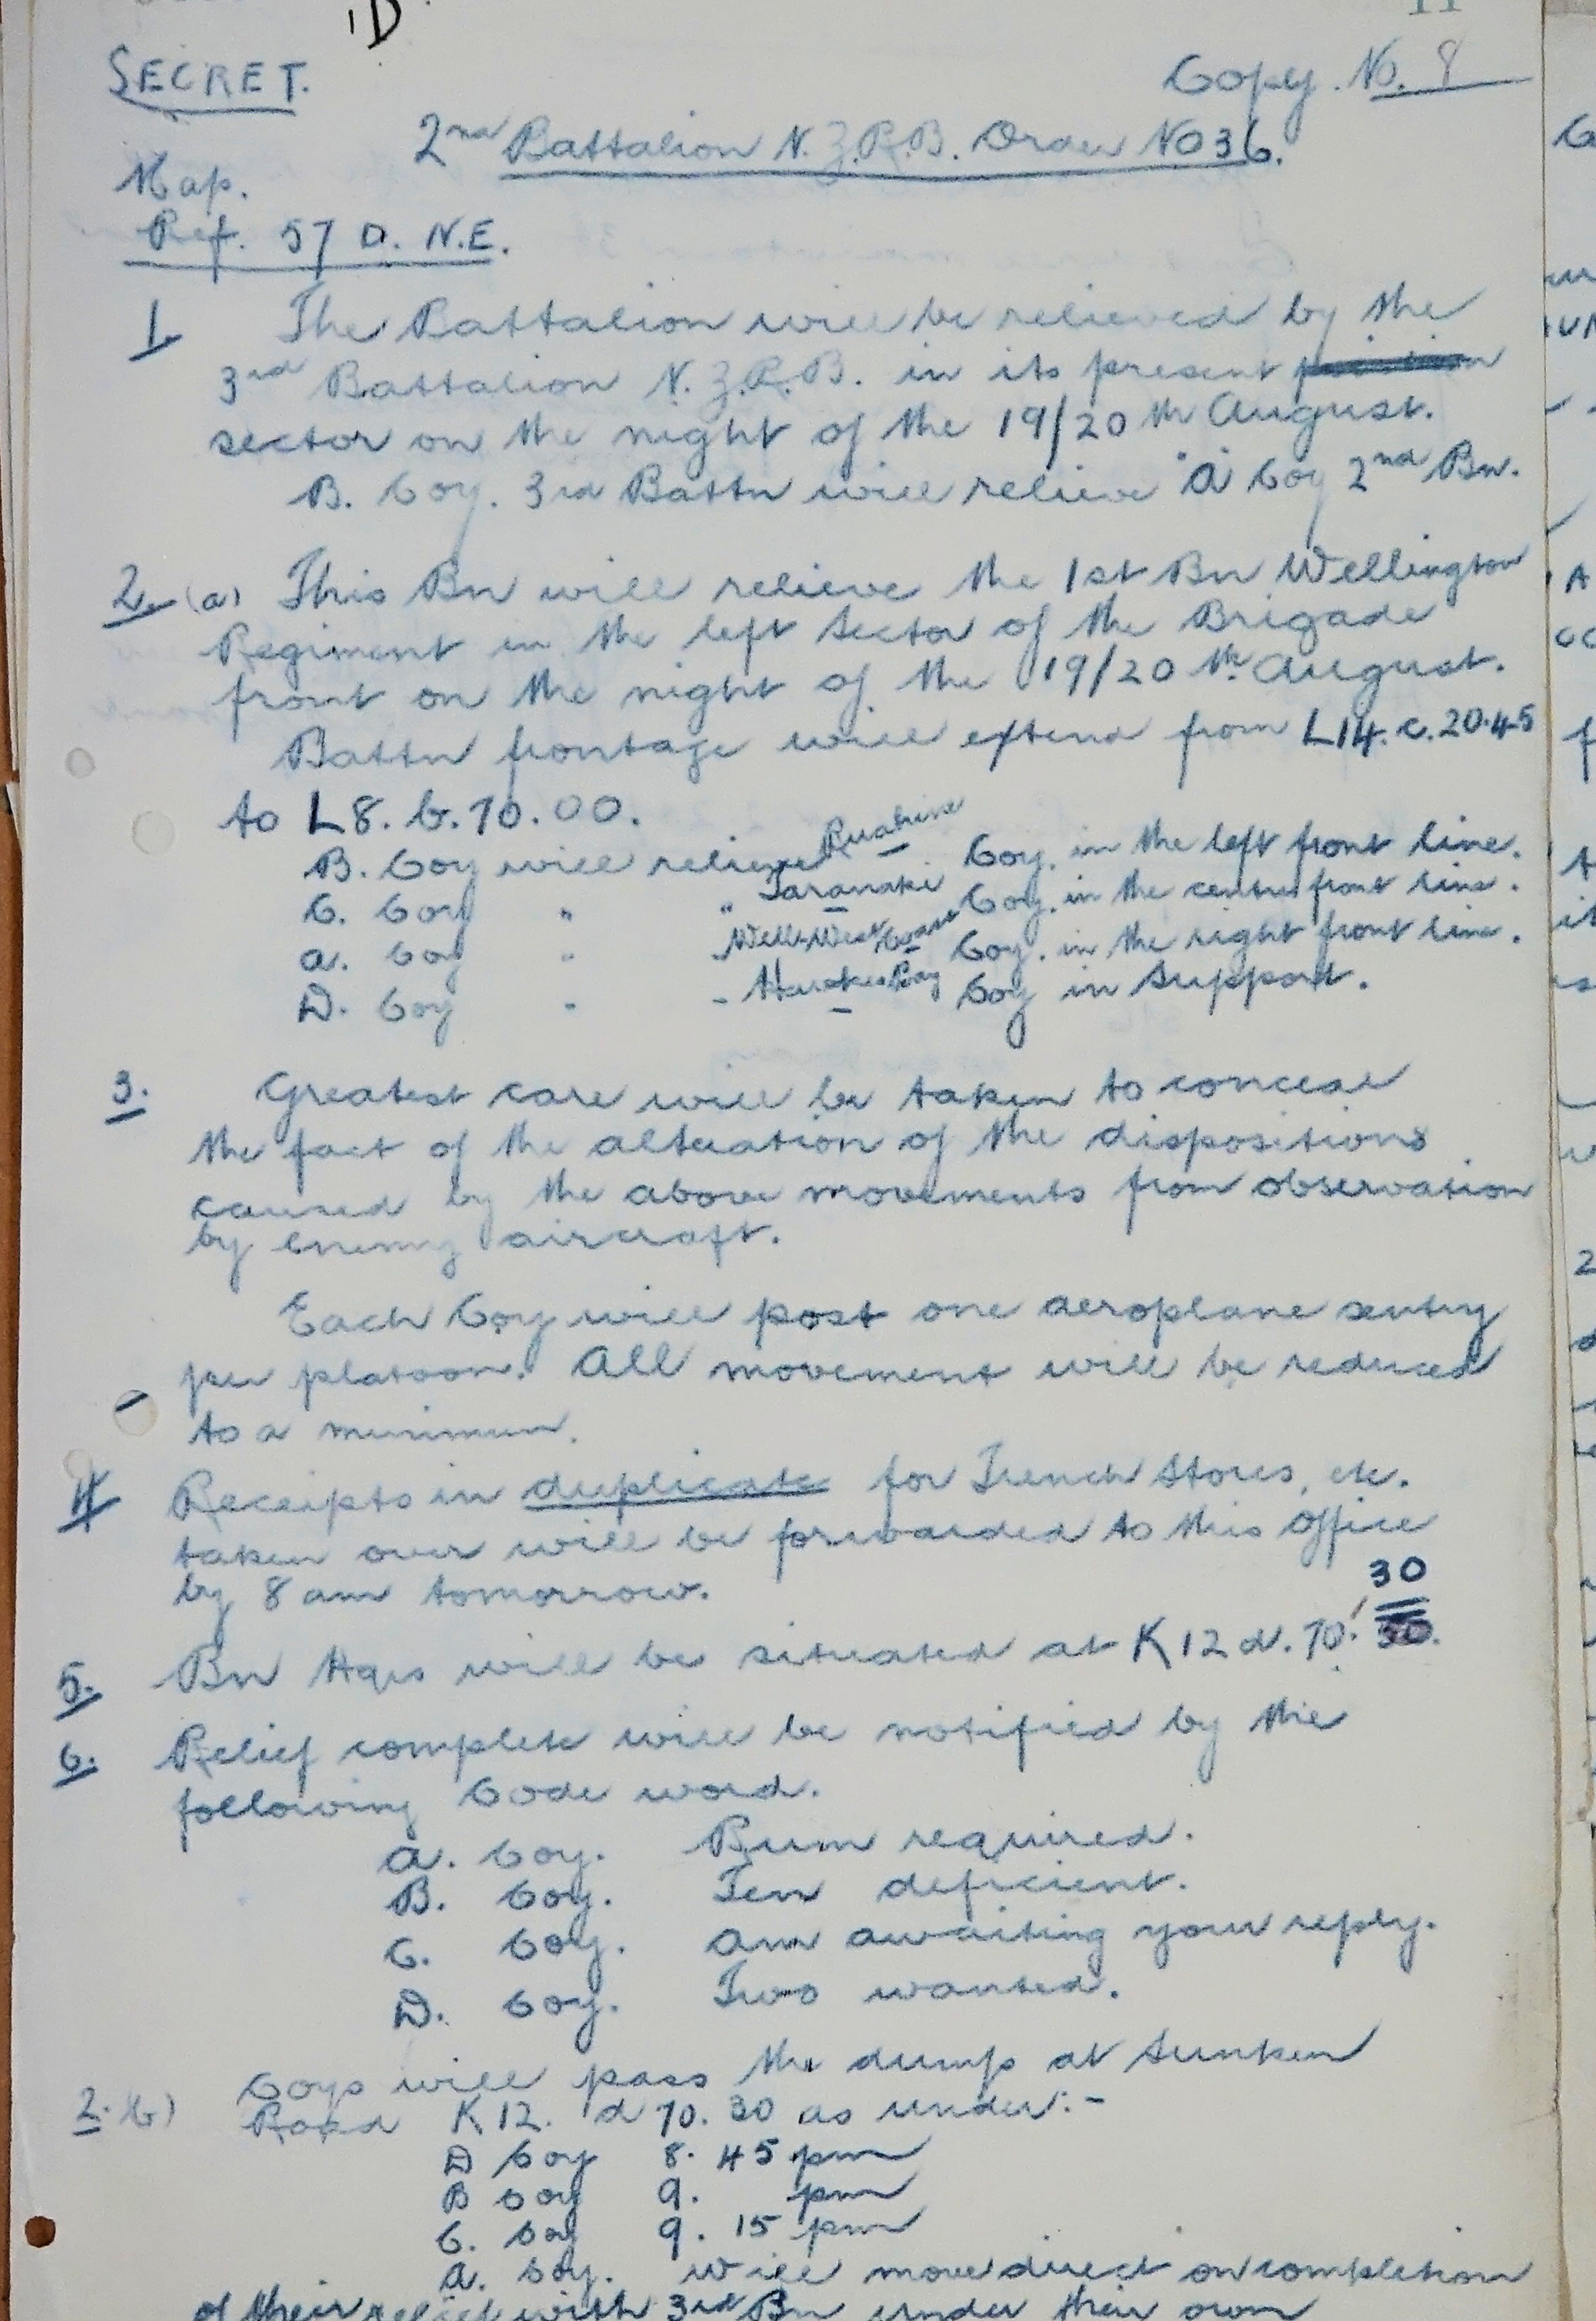 1D
11
SECRET.
Copy. No. 8
2nd Battalion N.Z.R.B. Order No 36.
Map.
Ref. 57 D. N.E.
1. The Battalion will be relieved by the
3rd Battalion N.Z.R.B. in its present position
sector on the night of the 19/20th August.
B. Coy. 3rd Battn will relieve "A" Coy 2nd Bn.
2. (a) This Bn will relieve the 1st Bn Wellington
Regiment in the left sector of the Brigade
front on the night of the 19/20th August.
Battn frontage will extend from L14.c.20.45
to L8.b.70.00.
B. Coy will relieve Ruahine Coy. in the left front line.
C. Coy " " Taranaki Coy. in the centre front line.
A. Coy " " Well-West Coast Coy. in the right front line.
D. Coy " " Hawkes Bay Coy in Support.
3. Greatest care will be taken to conceal
the fact of the alteration of the dispositions
caused by the above movements from observation
by enemy aircraft.
Each Coy will post one aeroplane sentry
per platoon. All movement will be reduced
to a minimum.
4 Receipts in duplicate for Trench Stores, etc.
taken over will be forwarded to this Office
by 8 am tomorrow.
30
5. Bn Hqrs will be situated at K12d.70.30.
6. Relief complete will be notified by the
following Code word.
A. Coy. Rum required.
B. Coy. Ten deficient.
C. Coy. Am awaiting your reply.
D. Coy. Two wanted.
2.(b) Coys will pass the dump at Sunken
Road K12. d 70.30 as under:-
D Coy 8.45 pm
B Coy 9. pm
C. Coy 9.15 pm
A. Coy. will move direct on completion
of their relief with 3rd Bn under their own